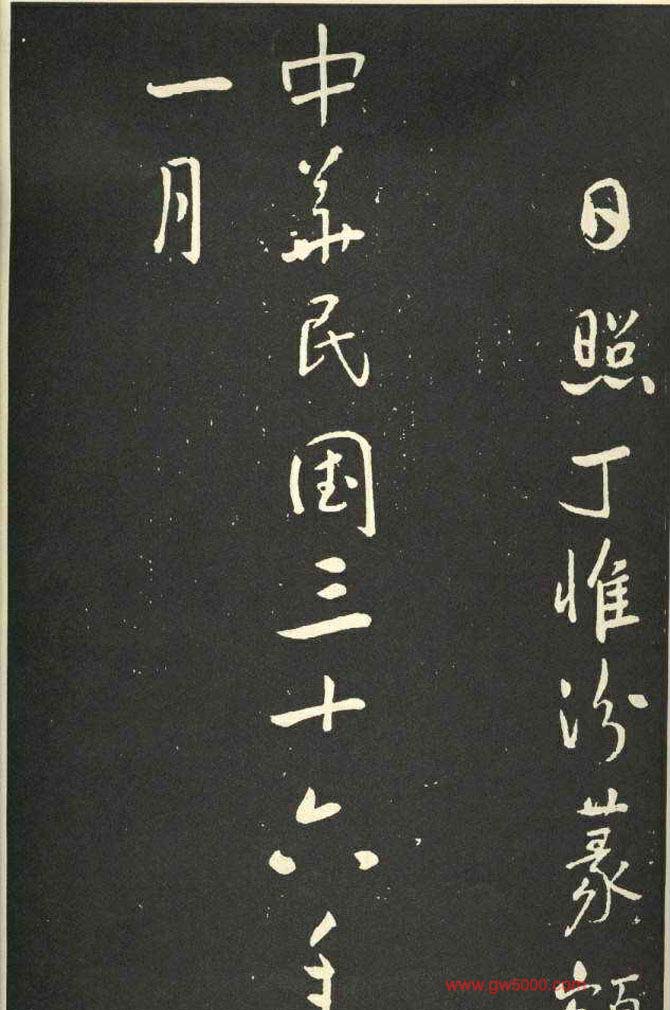 日照丁惟汾篆額
中華民国三十六年
一月
www.gw5000.com